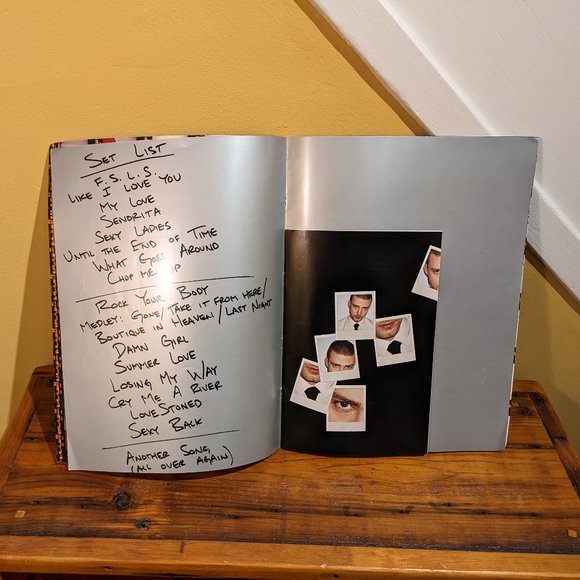 SET LIST
F.S.L.S.
LIKE I LOVE YOU
MY LOVE
SENORITA
SEXY LADIES
UNTIL THE END OF TIME
WHAT GOES AROUND
CHOP ME UP
ROCK YOUR BODY
MEDLEY: GONE/TAKE IT FROM HERE/
BOUTIQUE IN HEAVEN/LAST NIGHT
DAMN GIRL
SUMMER LOVE
LOSING MY WAY
CRY ME A RIVER
LOVESTONED
SEXY BACK
ANOTHER SONG,
(ALL OVER AGAIN)